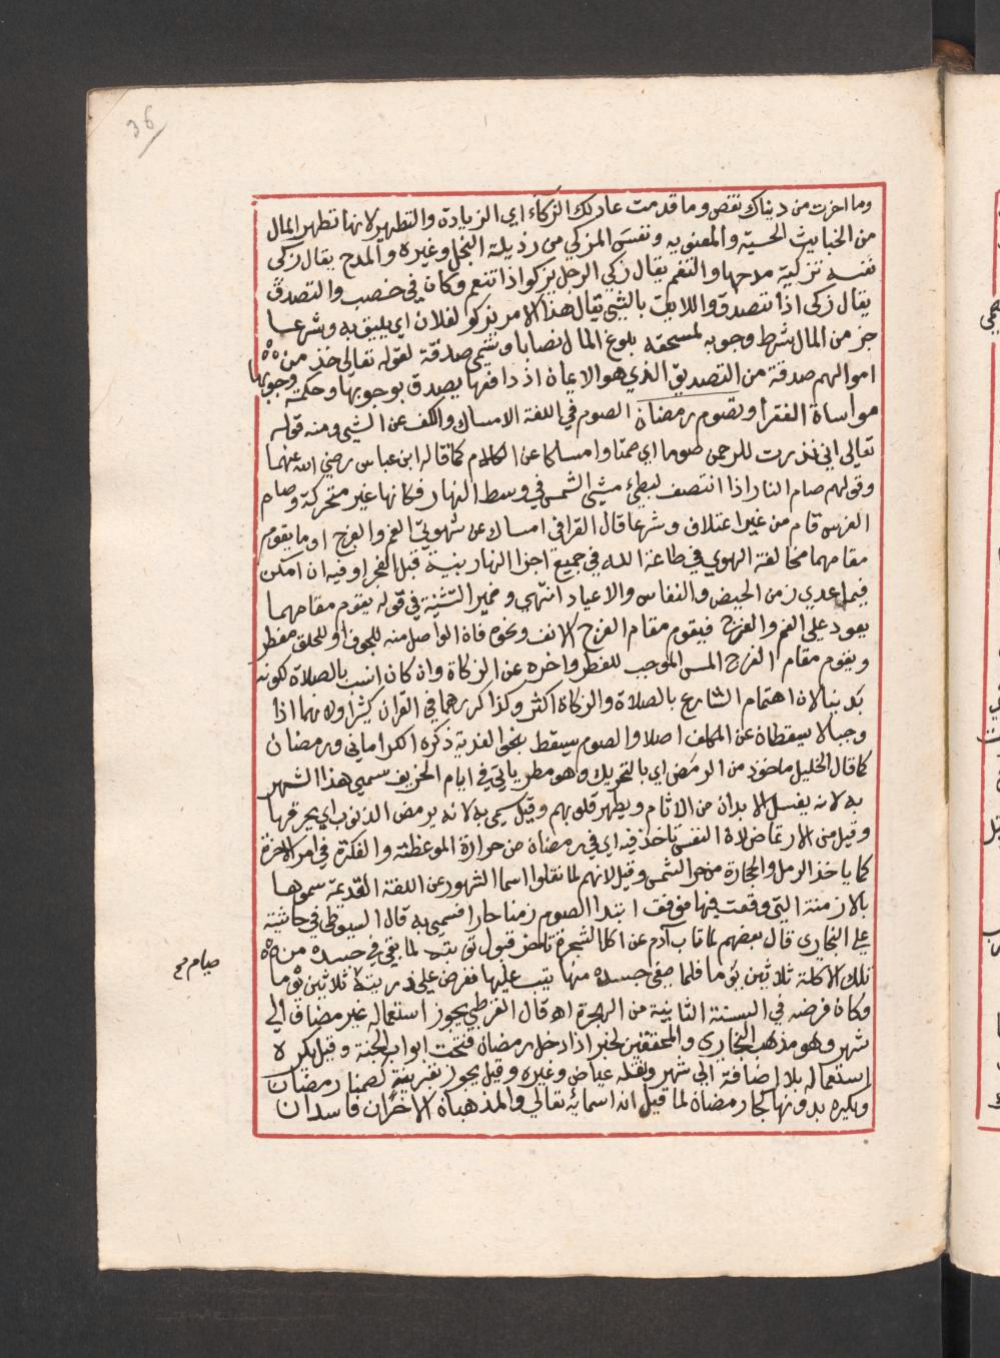 36
وما اخرت من ديناك نقص وما قدمت عاد لك الزكاء اي الزيادة والتطهير لانها تطهر المال
من الخبايث الحسية والمعنويه ونفس المزكي من رذيلة البخل وغيره والمدح يقال زكى
نفسه تزكية مدحها والتنعم يقال زكى الرجل يزكوا اذا تنعم وكان في خصب والتصدق
يقال زكى اذا تصدق واللايق بالشي يقال هذا الامر يزكوا لفلان اي يليق به وشرعا
جز من المال شرط وجوبه لمستحقه بلوغ المال نصابا وتسمى صدقة لقوله تعالى خذ من
اموالهم صدقة من التصديق الذي هو الايمان اذ دافعها يصدق بوجوبها وحكمة وجوبها
مواساة الفقرا وتصوم رمضان الصوم في اللغة الامساك والكف عن الشي ومنه قوله
تعالى اني نذرت للرحمن صوما اي صمتا وامساكا عن الكلام كما قاله ابن عباس رضي الله عنهما
وقولهم صام النار اذا انتصف لبطئ مشي الشمس في وسط النهار فكانها غير متحركة وصام
الفرس قام من غير اعتلاف وشرعا قال القرافي امساك عن شهوتي الفم والفرج او ما يقوم
مقامهما مخالفة الهوي في طاعة الله في جميع اجزا النهار بنية قبل الفجر او فيه ان امكن
فيما عدي زمن الحيض والنفاس والاعياد انتهى وضمير التثنية في قوله يقوم مقامهما
يعود على الفم والفرج فيقوم مقام الفرج الانف ونحوه فان الواصل منه للجوف او للحلق مفطر
ويقوم مقام الفرج المس الموجب للفطر واخره عن الزكاة وان كان انسب بالصلاة لكونه
بدنيا لان اهتمام الشارع بالصلاة والزكاة اكثر وكذا كررهما في القران كثيرا ولانهما اذا
وجبا لا يسقطان عن المكلف اصلا والصوم يسقط بنحو الفدية ذكره الكراماني ورمضان
كما قال الخليل ماخوذ من الرمض اي بالتحريك وهو مطر ياتي في ايام الخريف سمي هذا الشهر
به لانه يغسل الابدان من الاثام ويطهر قلوبهم وقيل سمي به لانه يرمض الذنوب اي يحرقها
وقيل من الارتماض لان النفس تاخذ فيه اي في رمضان من حرارة الموعظة والفكرة في امر الاخرة
كما ياخذ الرمل والحجارة من حر الشمس وقيل لانهم لما نقلوا اسما الشهور عن اللغة القديمة سموها
بالازمنة التي وقعت فيها فوقف ابتدا الصوم زمنا حارا فسمي به قال السيوطي في حاشيته
على البخاري قال بعضهم لما تاب آدم عن اكل الشجرة تاخر قبول توبته لما بقي في جسده من
تلك الاكلة ثلاثين يوما فلما صفى جسده منها تيب عليها ففرض على ذريته ثلاثين يوما
صيام صح
وكان فرضه في السنة الثانية من الهجرة اه قال القرطبي يجوز استعماله غير مضاف الى
شهر وهو مذهب البخاري والمحققين لخبر اذا دخل رمضان فتحت ابواب الجنة وقيل يكره
استعماله بلا اضافة الى شهر ونقله عياض وغيره وقيل يجوز بقرينة كصمنا رمضان
ويكره بدونها كجا رمضان لما قيل انه اسمائه تعالى والمذهبان الاخران فاسدان